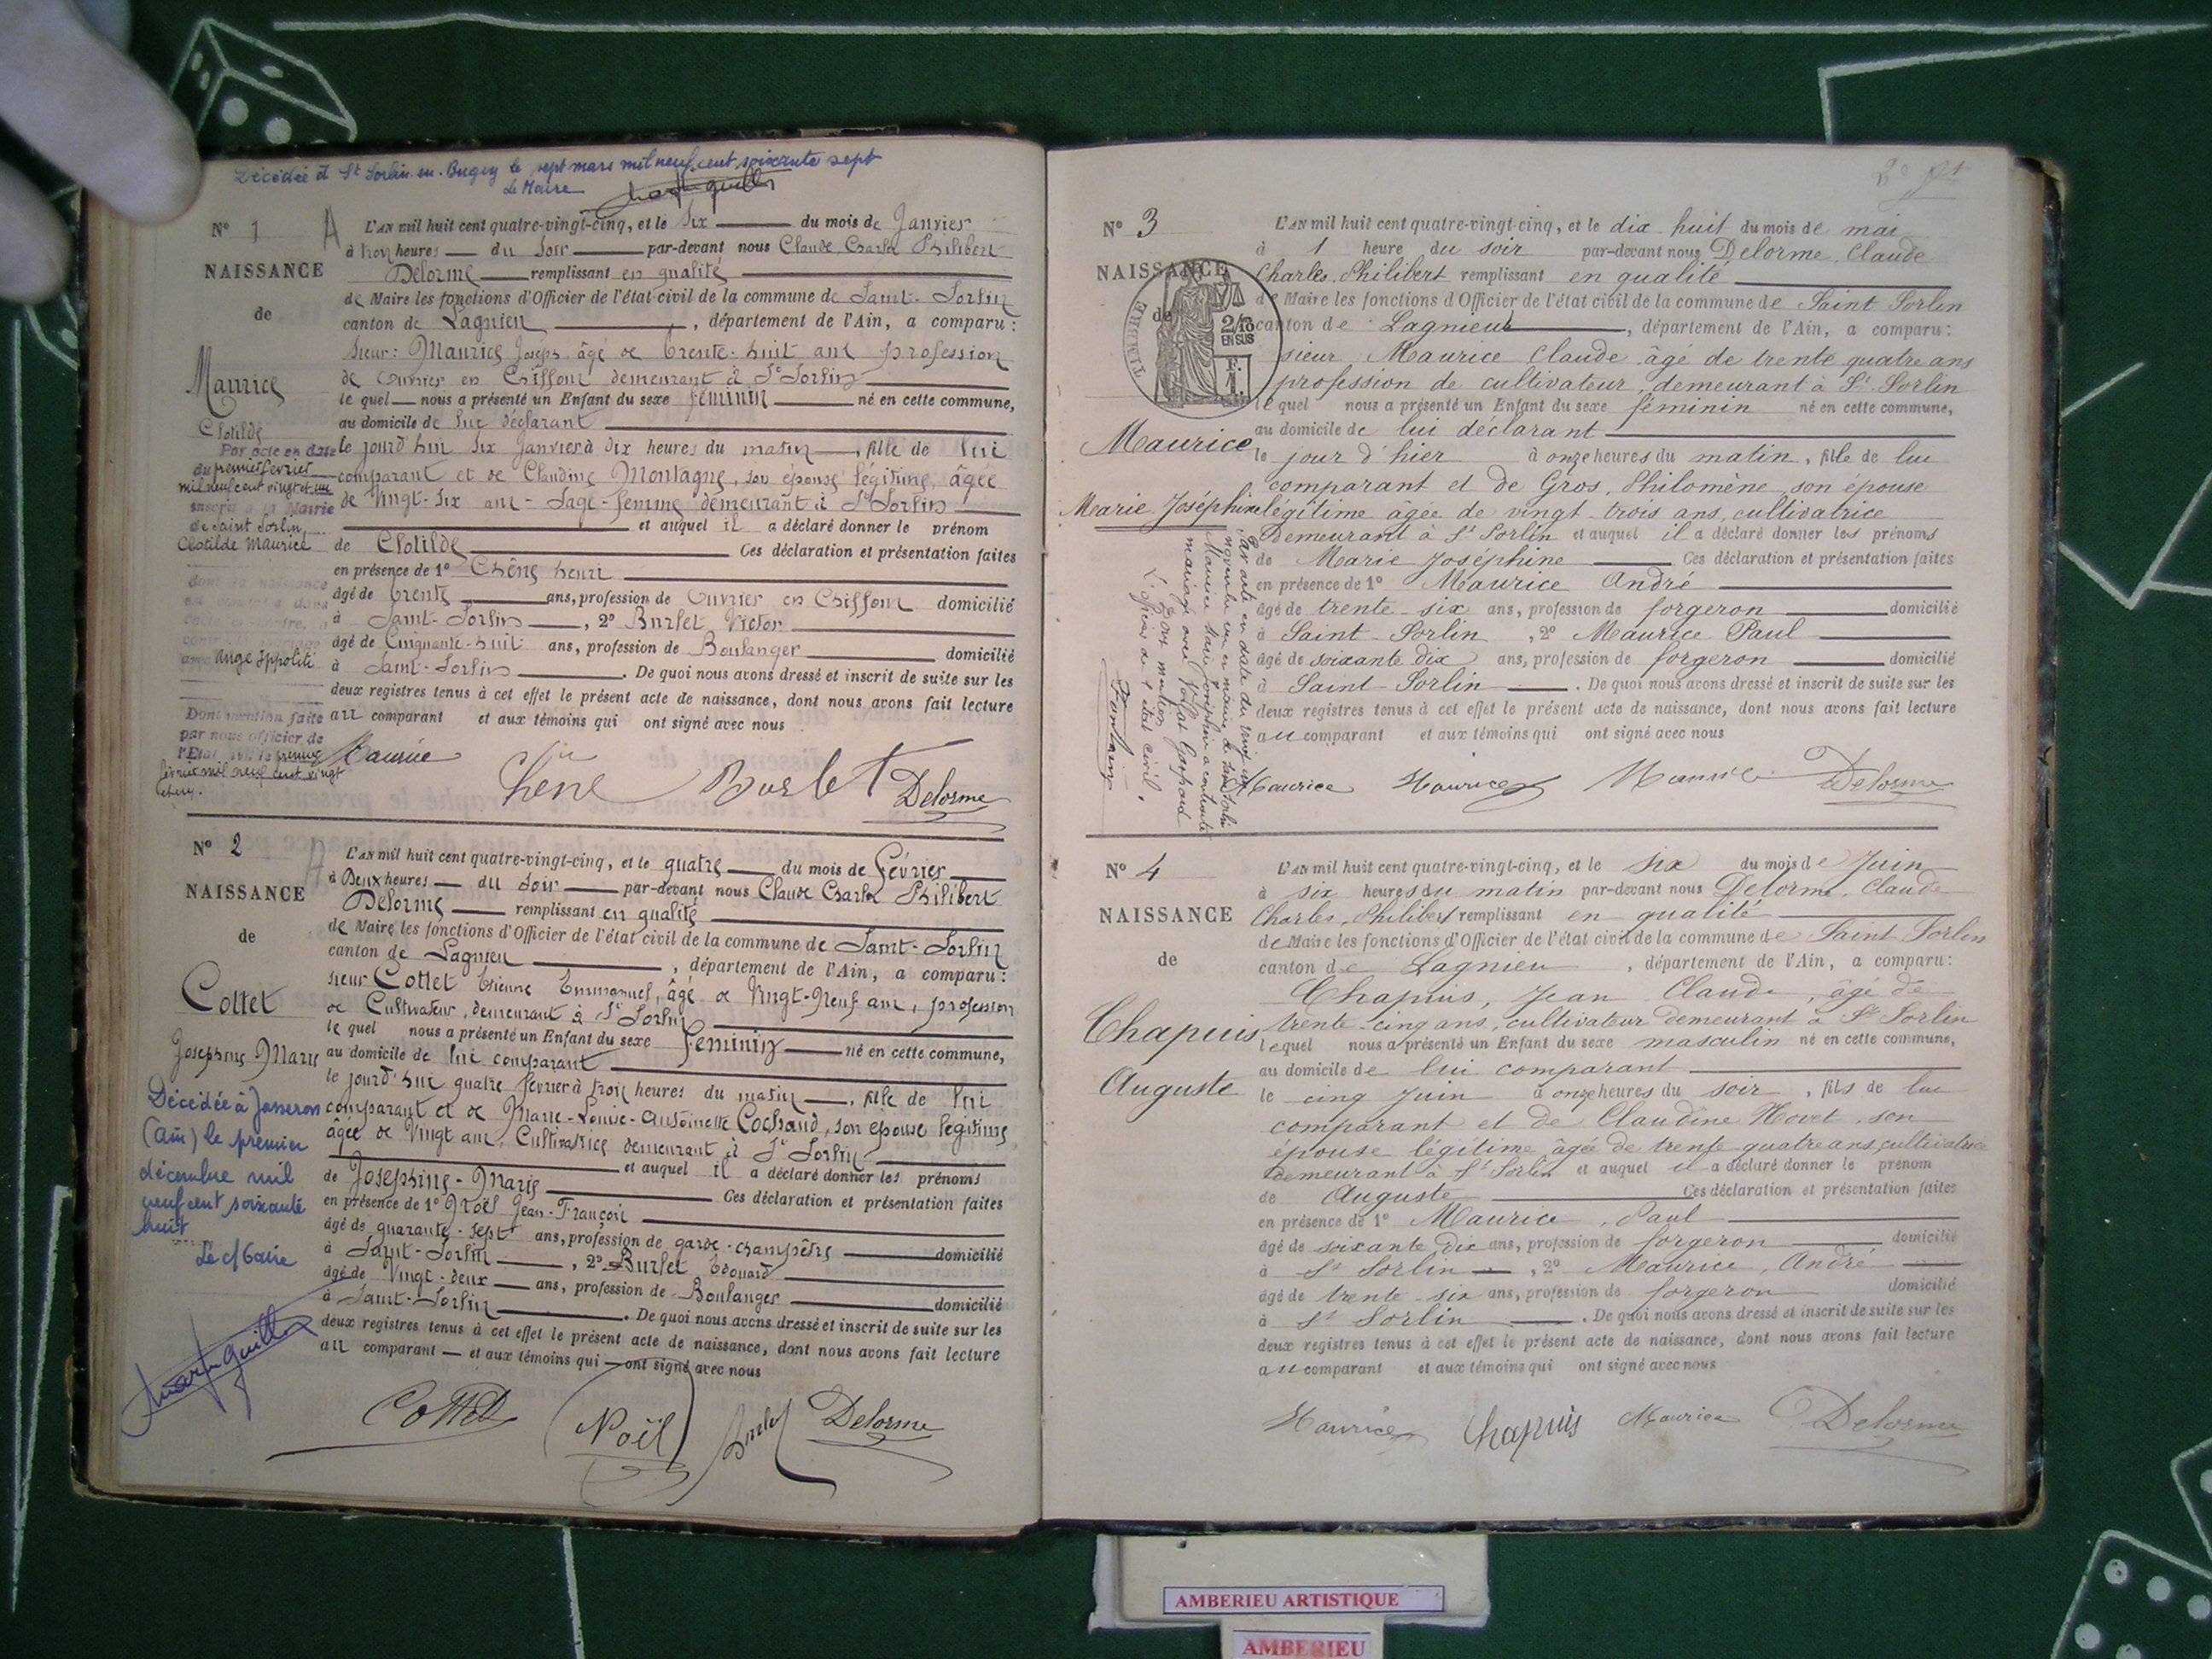 Décédée à St Sorlin-en-Bugey le sept mars mil neuf cent soixante sept
Le Maire
N° 1
NAISSANCE
de
Maurice
Clotilde
Par acte en date
du premier février
mil neuf cent vingt et un
inscrit à la Mairie
de Saint Sorlin,
Clotilde Maurice
dont la naissance
avec Ange Ippolite
Dont mention faite
par nous officier de
l'Etat civil le premier
février mil neuf cent vingt
L'AN mil huit cent quatre-vingt-cinq, et le six du mois de Janvier
à trois heures du soir par-devant nous Claude Charles Philibert
Delorme remplissant en qualité
de Maire les fonctions d'Officier de l'état civil de la commune de Saint-Sorlin
canton de Lagnieu, département de l'Ain, a comparu :
Sieur : Maurice Joseph âgé de trente-huit ans profession
de Ouvrier en Chiffons demeurant à St Sorlin
le quel nous a présenté un Enfant du sexe féminin né en cette commune,
au domicile de lui déclarant
le jourd'hui six Janvier à dix heures du matin, fille de lui
comparant et de Claudine Montagne, son épouse légitime, âgée
de vingt-six ans - Sage-femme demeurant à St Sorlin
et auquel il a déclaré donner le prénom
de Clotilde Ces déclaration et présentation faites
en présence de 1° Chêne henri
âgé de trente ans, profession de Ouvrier en Chiffons domicilié
à Saint-Sorlin, 2° Burlet Victor
âgé de Cinquante-huit ans, profession de Boulanger domicilié
à Saint-Sorlin. De quoi nous avons dressé et inscrit de suite sur les
deux registres tenus à cet effet le présent acte de naissance, dont nous avons fait lecture
au comparant et aux témoins qui ont signé avec nous
Maurice Chêne Burlet Delorme
N° 2
NAISSANCE
de
Cottet
Josephine Marie
Décédée à Jasseron
(Ain) le premier
décembre mil
neuf cent soixante
huit
L'AN mil huit cent quatre-vingt-cinq, et le quatre du mois de Février
à Deux heures du soir par-devant nous Claude Charles Philibert
Delorme remplissant en qualité
de Maire les fonctions d'Officier de l'état civil de la commune de Saint-Sorlin
canton de Lagnieu, département de l'Ain, a comparu :
sieur Cottet Etienne Emmanuel, âgé de Vingt-Neuf ans, profession
de Cultivateur, demeurant à St Sorlin
le quel nous a présenté un Enfant du sexe Féminin né en cette commune,
au domicile de lui comparant
le jourd'hui quatre février à trois heures du matin, fille de lui
comparant et de Marie-Louise-Antoinette Cochand, son épouse légitime
âgée de Vingt ans, Cultivatrice demeurant à St Sorlin
et auquel il a déclaré donner les prénoms
de Josephine-Marie Ces déclaration et présentation faites
en présence de 1° Noël Jean-François
âgé de quarante-sept ans, profession de garde-champêtre domicilié
à Saint-Sorlin, 2° Burlet Edouard
âgé de Vingt-deux ans, profession de Boulanger domicilié
à Saint-Sorlin. De quoi nous avons dressé et inscrit de suite sur les
deux registres tenus à cet effet le présent acte de naissance, dont nous avons fait lecture
au comparant et aux témoins qui ont signé avec nous
Cottet Noël Burlet Delorme
N° 3
NAISSANCE
de
TIMBRE
2/10
EN SUS
F.
1.
Maurice
Marie Joséphine
Par acte en date du vingt un
novembre en mairie de Saint Sorlin
Maurice Marie Joséphine a contracté
mariage avec Gaspard
Dont mention
L'officier de l'état civil,
L'AN mil huit cent quatre-vingt-cinq, et le dix huit du mois de mai
à 1 heure du soir par-devant nous Delorme, Claude
Charles, Philibert remplissant en qualité
de Maire les fonctions d'Officier de l'état civil de la commune de Saint Sorlin
canton de Lagnieu, département de l'Ain, a comparu :
sieur Maurice Claude âgé de trente quatre ans
profession de cultivateur, demeurant à St Sorlin
le quel nous a présenté un Enfant du sexe féminin né en cette commune,
au domicile de lui déclarant
le jour d'hier à onze heures du matin, fille de lui
comparant et de Gros, Philomène son épouse
légitime âgée de vingt trois ans, cultivatrice
Demeurant à St Sorlin et auquel il a déclaré donner les prénoms
de Marie Joséphine Ces déclaration et présentation faites
en présence de 1° Maurice André
âgé de trente-six ans, profession de forgeron domicilié
à Saint-Sorlin, 2° Maurice Paul
âgé de soixante dix ans, profession de forgeron domicilié
à Saint-Sorlin. De quoi nous avons dressé et inscrit de suite sur les
deux registres tenus à cet effet le présent acte de naissance, dont nous avons fait lecture
au comparant et aux témoins qui ont signé avec nous
Maurice Maurice Maurice Delorme
N° 4
NAISSANCE
de
Chapuis
Auguste
L'AN mil huit cent quatre-vingt-cinq, et le six du mois de Juin
à six heures du matin par-devant nous Delorme, Claude
Charles, Philibert remplissant en qualité
de Maire les fonctions d'Officier de l'état civil de la commune de Saint Sorlin
canton de Lagnieu, département de l'Ain, a comparu :
Chapuis, Jean Claude, âgé de
trente-cinq ans, cultivateur demeurant à St Sorlin
lequel nous a présenté un Enfant du sexe masculin né en cette commune,
au domicile de lui comparant
le cinq juin à onze heures du soir, fils de lui
comparant et de Claudine Hovet, son
épouse légitime âgée de trente quatre ans, cultivatrice
demeurant à St Sorlin et auquel il a déclaré donner le prénom
de Auguste Ces déclaration et présentation faites
en présence de 1° Maurice, Paul
âgé de soixante dix ans, profession de forgeron domicilié
à St Sorlin, 2° Maurice, André
âgé de trente-six ans, profession de forgeron domicilié
à St Sorlin. De quoi nous avons dressé et inscrit de suite sur les
deux registres tenus à cet effet le présent acte de naissance, dont nous avons fait lecture
au comparant et aux témoins qui ont signé avec nous
Maurice Chapuis Maurice Delorme
AMBERIEU ARTISTIQUE
AMBERIEU